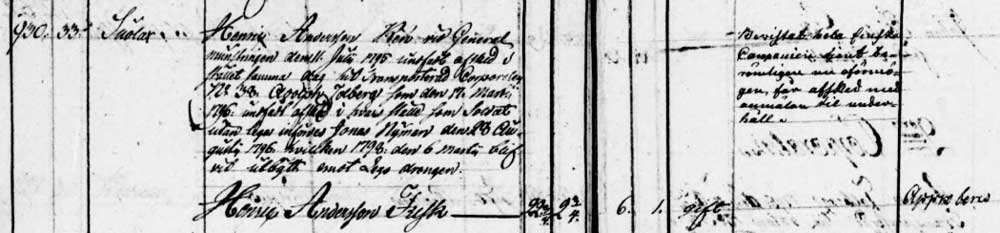 930. 33. Suolax
Henric Andersson Kew. vid General
munstringen den 11 Julii 1795 undfått afsked i
stället samma dag hit transporterad Corporalen
N:o 33. Adolph Tolberg som den 17. Martii
1796. undfått afsked i hvars ställe som Soldat
utan lega infördes Jonas Nyman den 23 Au-
gusti 1796. hvilken 1798. den 6 Martii blif-
vit utbytt emot Lego drengen.
Henric Andersson Frisk 22 3/4 2 3/4. 6. 1. gift
Bevistat hela finska
Campanien tjent be-
römligen nu oförmö-
gen, får affsked med
anmälan til under-
håll.
Approberes